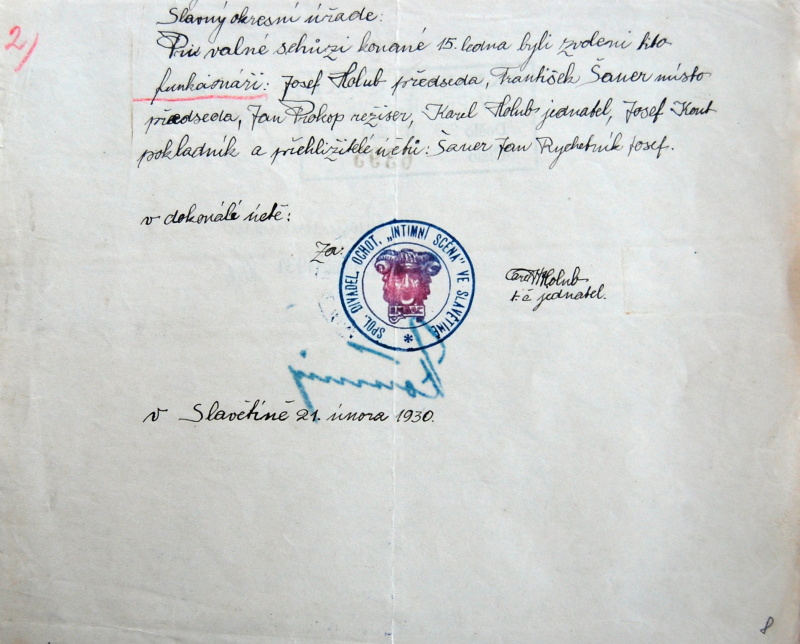 2)
Slavný okresní úřade:
Při valné schůzi konané 15. ledna byli zvoleni tito
funkcionáři: Josef Holub předseda, František Šauer místo
předseda, Jan Prokop režiser, Karel Holub jednatel, Josef Kout
pokladník a přehližiklé účtů: Šauer Jan Rychetník Josef.
v dokonálé úctě:
Za:
SPOL. DIVADEL. OCHOT. „INTIMNÍ SCÉNA" VE SLAVĚTÍNĚ
Holub
t. č. jednatel.
v Slavětíně 21. února 1930.
8